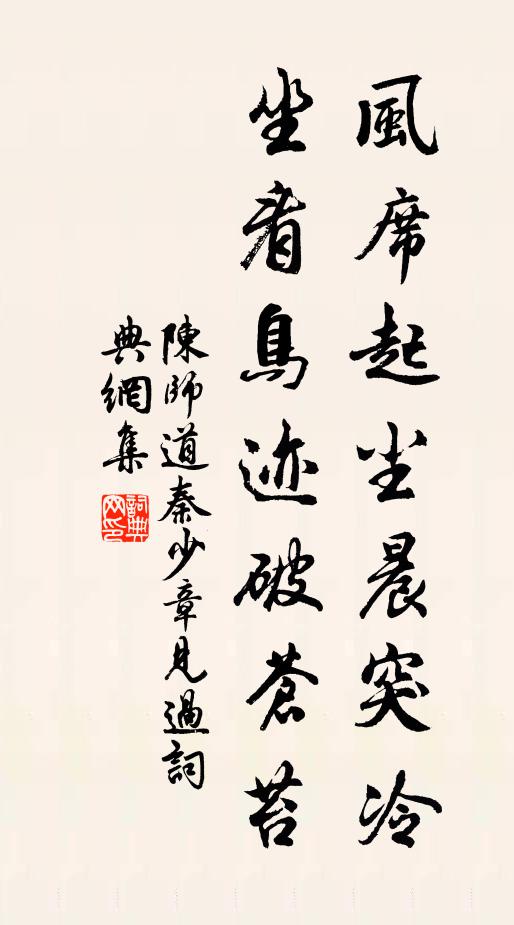 風席起坐晨突冷
坐看鳥迹破蒼苔
陳師道秦少章見過詞
典網集
詞典網印